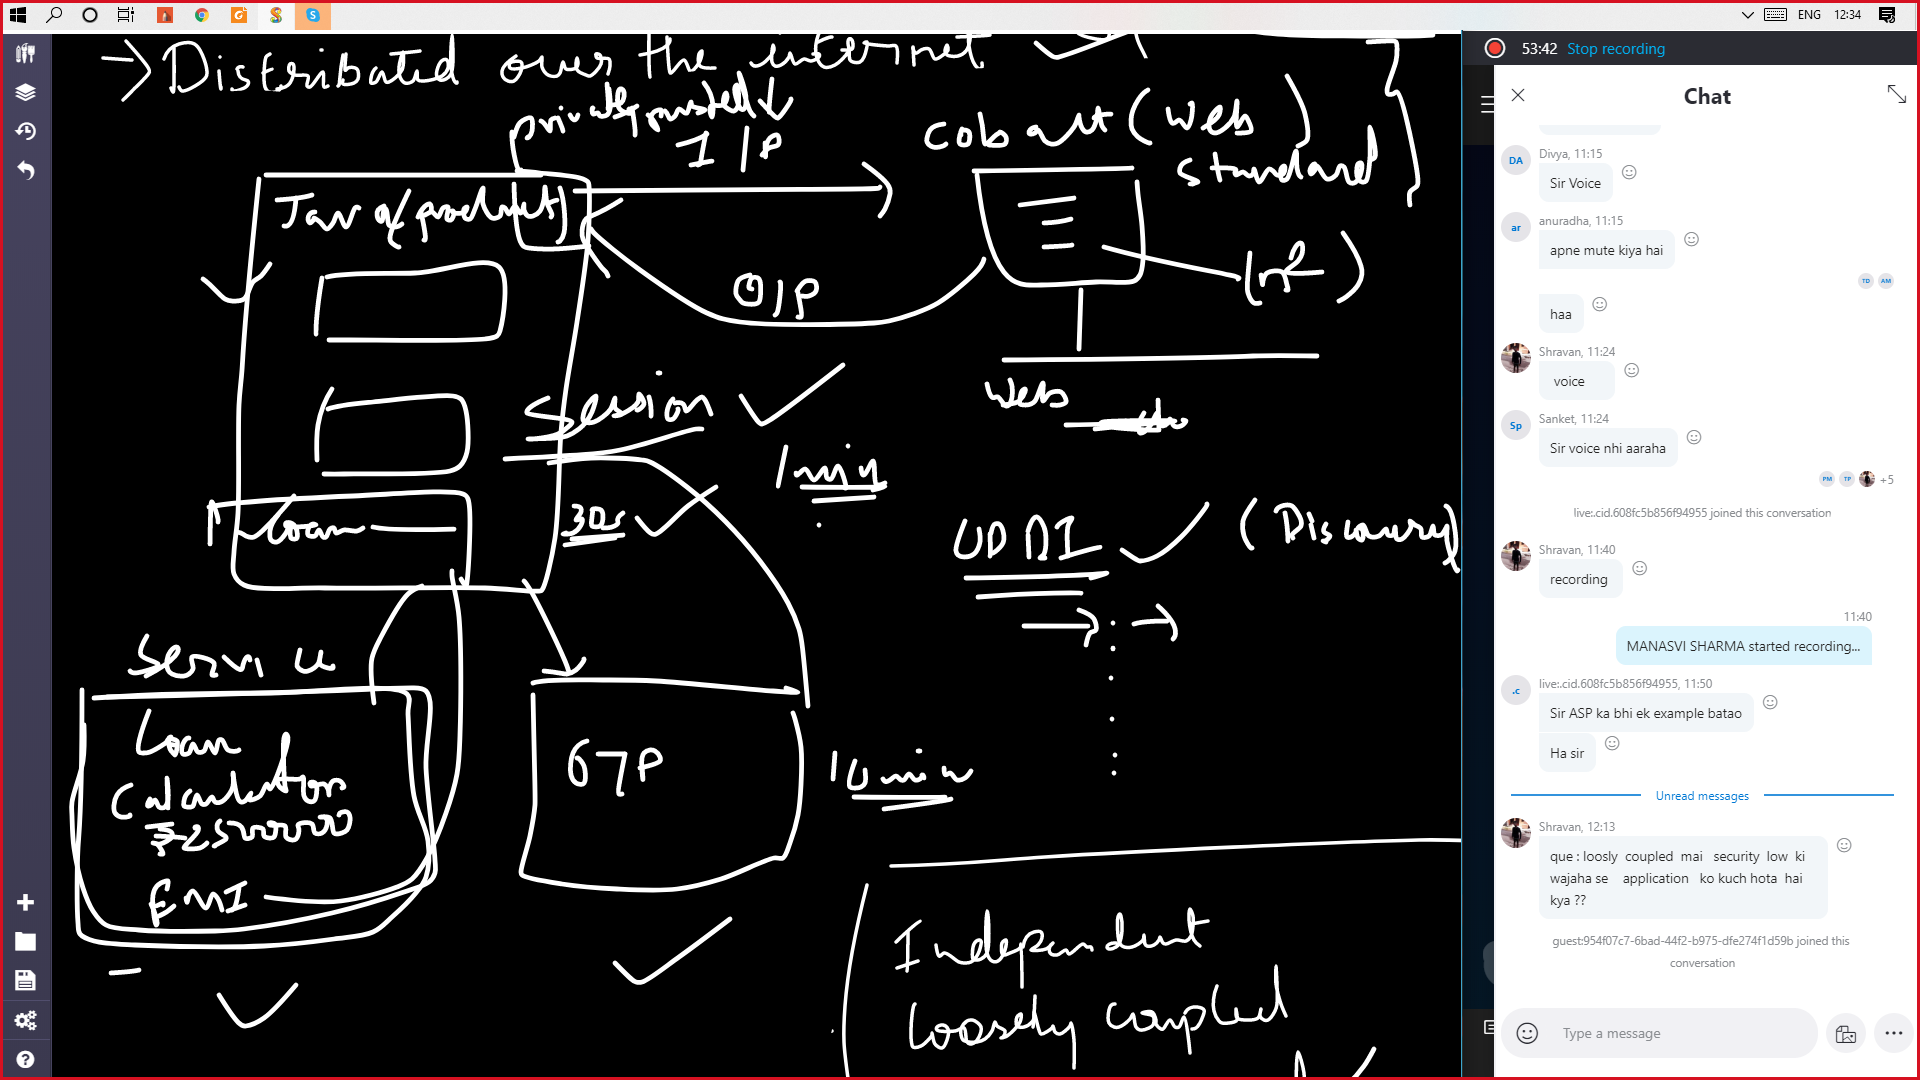 ENG 12:34
→ Distribated over the internet
I/P
cobalt (web
standard)
Java (product)
O/P
(n²)
Session
web
1min
loan
30s
UDDI (Discovery)
Service
loan
Calculator
₹2500000
EMI
67P
10min
Independent
loosely coupled
53:42 Stop recording
Chat
DA
Divya, 11:15
Sir Voice
ar
anuradha, 11:15
apne mute kiya hai
TD AM
haa
Shravan, 11:24
voice
Sp
Sanket, 11:24
Sir voice nhi aaraha
PM TP +5
live:.cid.608fc5b856f94955 joined this conversation
Shravan, 11:40
recording
11:40
MANASVI SHARMA started recording...
.c
live:.cid.608fc5b856f94955, 11:50
Sir ASP ka bhi ek example batao
Ha sir
Unread messages
Shravan, 12:13
que : loosly coupled mai security low ki
wajaha se application ko kuch hota hai
kya ??
guest:954f07c7-6bad-44f2-b975-dfe274f1d59b joined this
conversation
Type a message